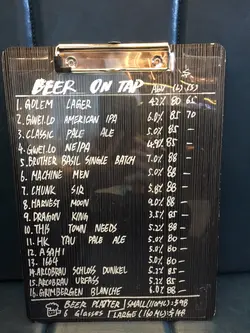 BEER ON TAP ABV (L) (S)
1. GOLEM LAGER 4.2% 80 65
2. GWEILO AMERICAN IPA 6.0% 85 70
3. CLASSIC PALE ALE 5.0% 85 -
4. GWEILO NEIPA 88 -
5. BROTHER BASIL SINGLE BATCH 7.0% 88 -
6. MACHINE MEN 5.0% 88 -
7. CHUNK SIR 88 -
8. HARVEST MOON 88 -
9. DRAGON KING 3.5% 85 -
10. THIS TOWN NEEDS 88 -
11. HK YAU PALE ALE 5.0% 88 -
12. ASAHI
13. 1664
14. ARCOBRAU SCHLOSS DUNKEL 5.2% 85 -
15. ARCOBRAU URFASS 5.2% 85 -
16. GRIMBERGEN BLANCHE 6.0% 88 -
BEER PLATTER SMALL (110ML): $98
6 Glasses LARGE (160ML): $148